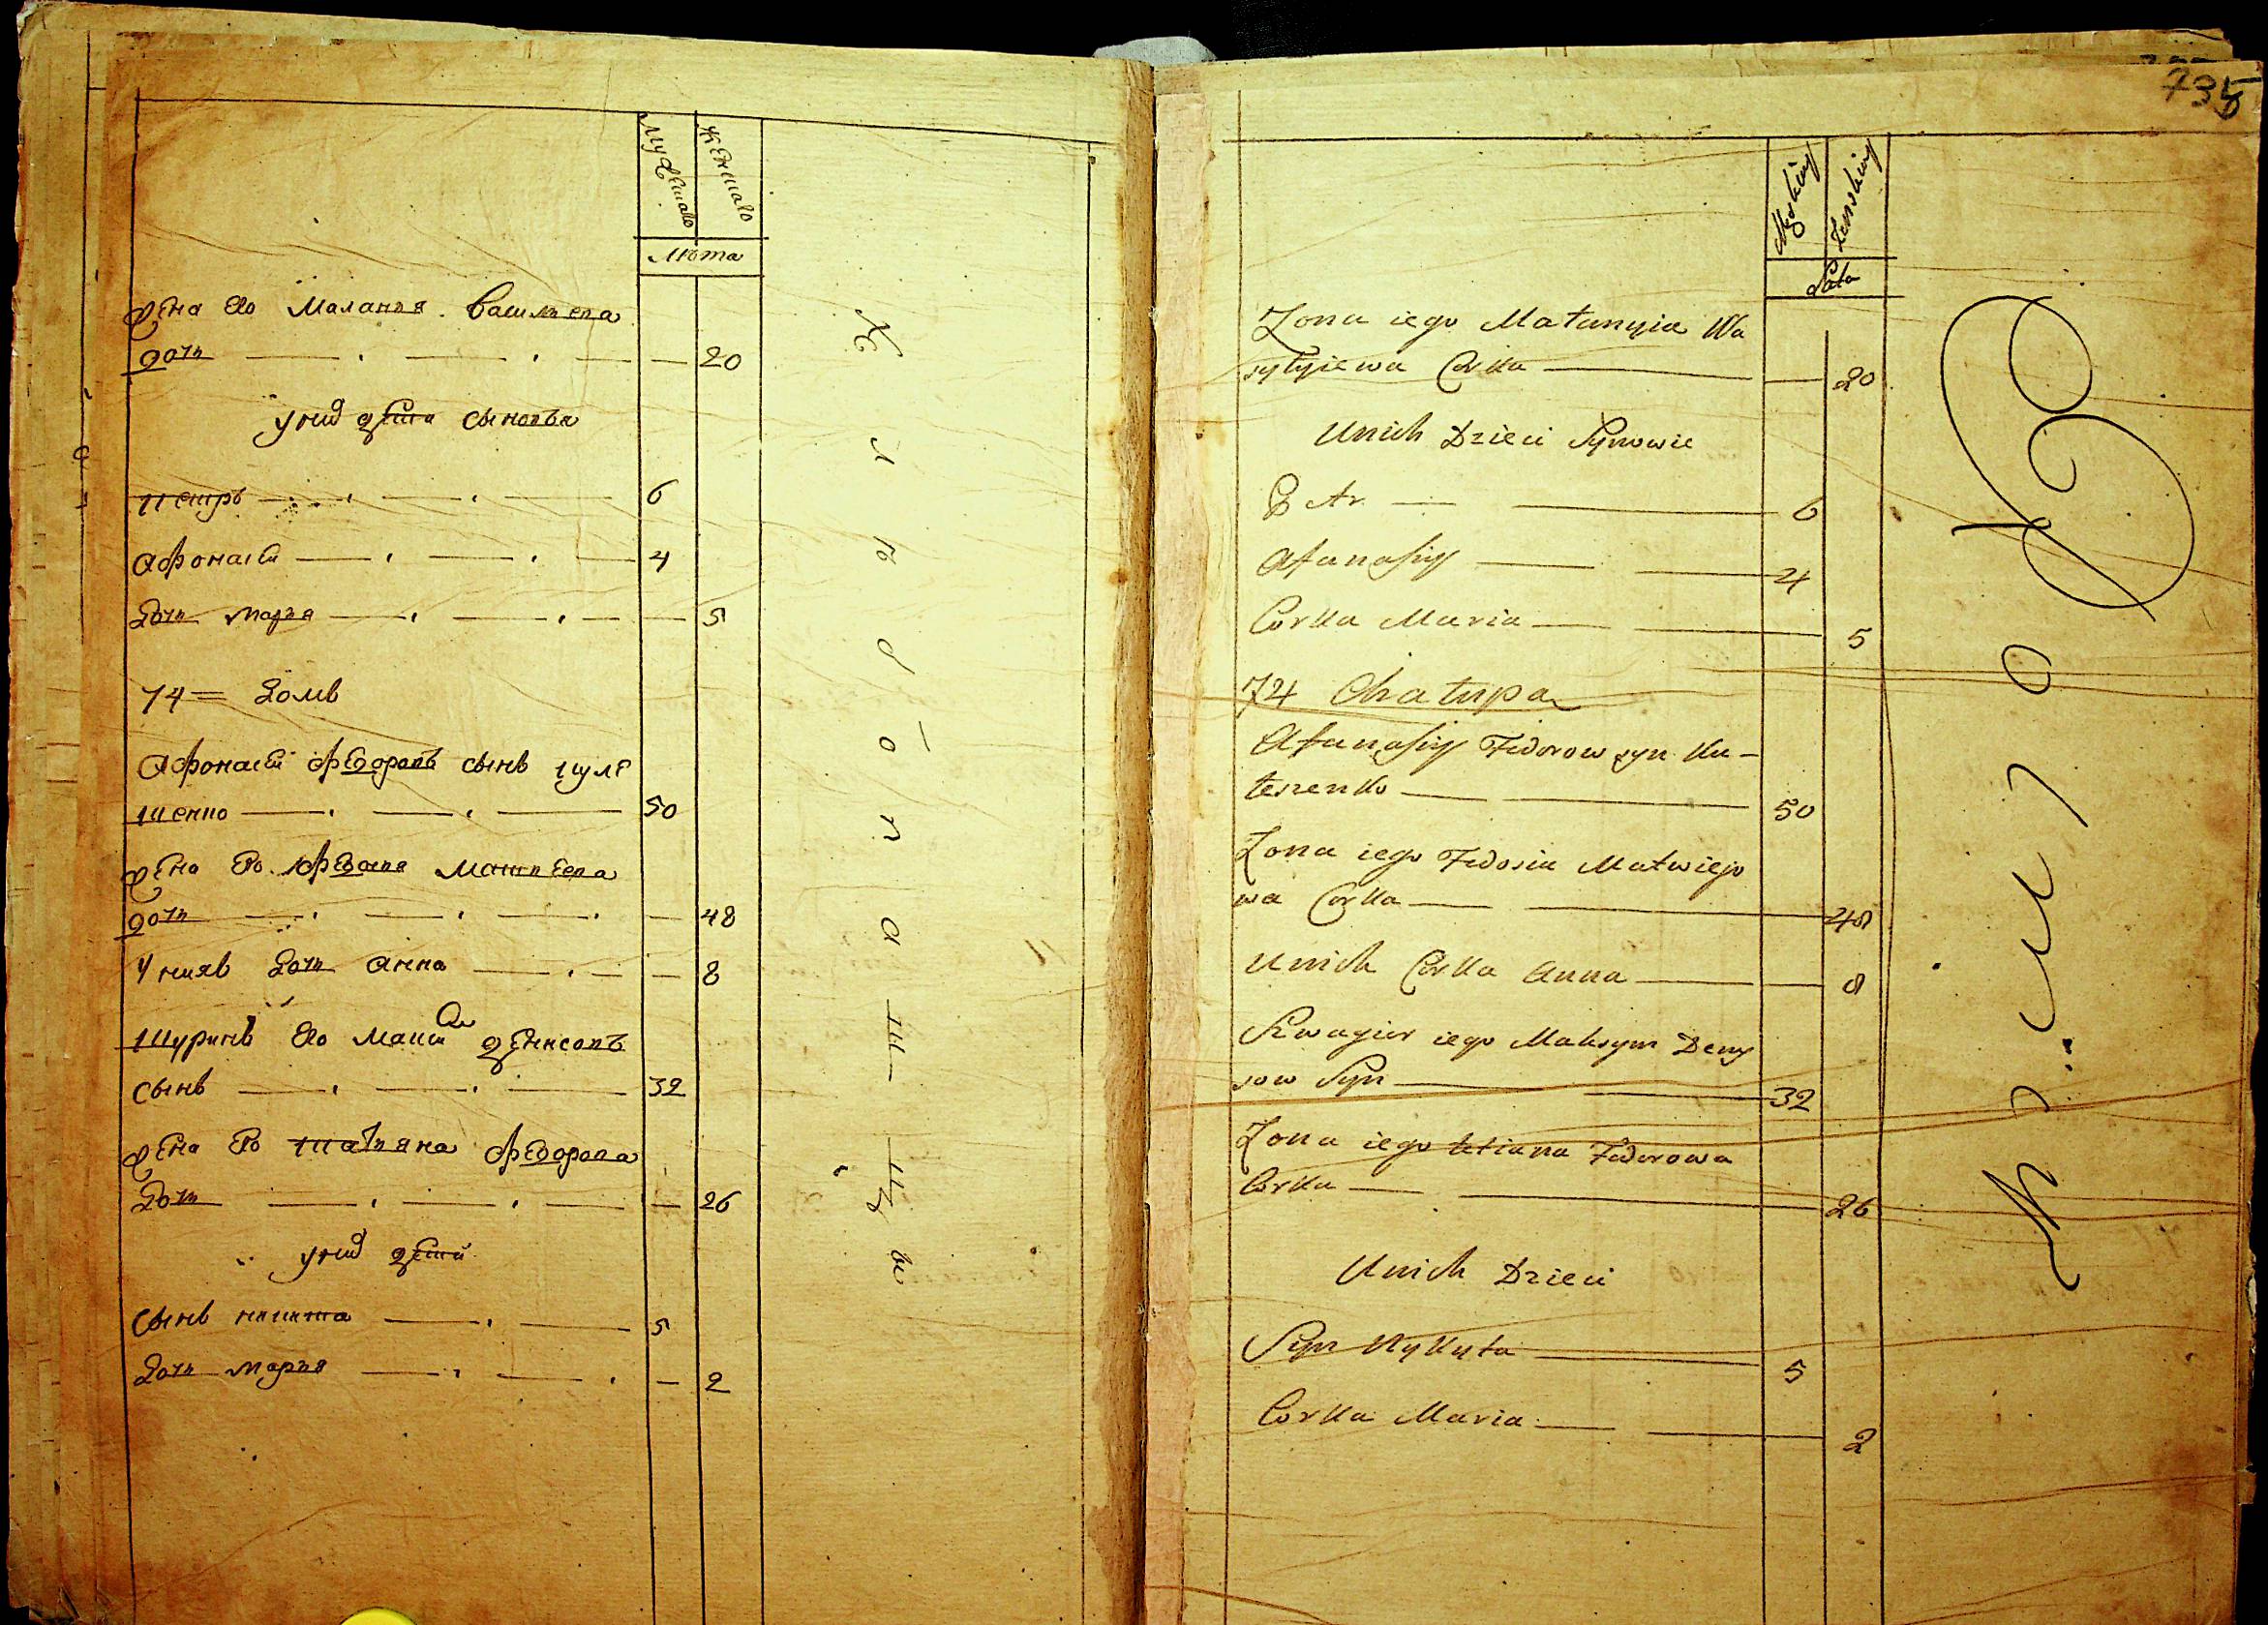 Мужеска
Женска
Лѣта
жена его Маланья Василева
дочь 20
у них дети сыновья
петръ 6
афонасей 4
дочь марья 5
74 = домъ
афонасей федоровъ сынъ кулѣ
шенко 50
жена его федосья матвеева
дочь 48
у нихъ дочь анна 8
шуринъ его максим денисовъ
сынъ 32
жена его татьяна федорова
дочь 26
у них детей
сынъ никита 5
дочь марья 2
735
Męskiey
Zenskiey
Lata
Zona iego Małanyia Wa
syłyiewa Corka 20
U nich Dzieci Synowie
Petr 6
Afanasiy 4
Corka Maria 5
74 Chatupa
Afanasiy Fedorow syn Ku-
leszenko 50
Zona iego Fedosia Matwiejo
wa Corka 48
U nich Corka Anna 8
Szwagier iego Maksym Deny
sow Syn 32
Zona iego tetiana Fedorowa
Corka 26
U nich Dzieci
Syn Nykyta 5
Corka Maria 2